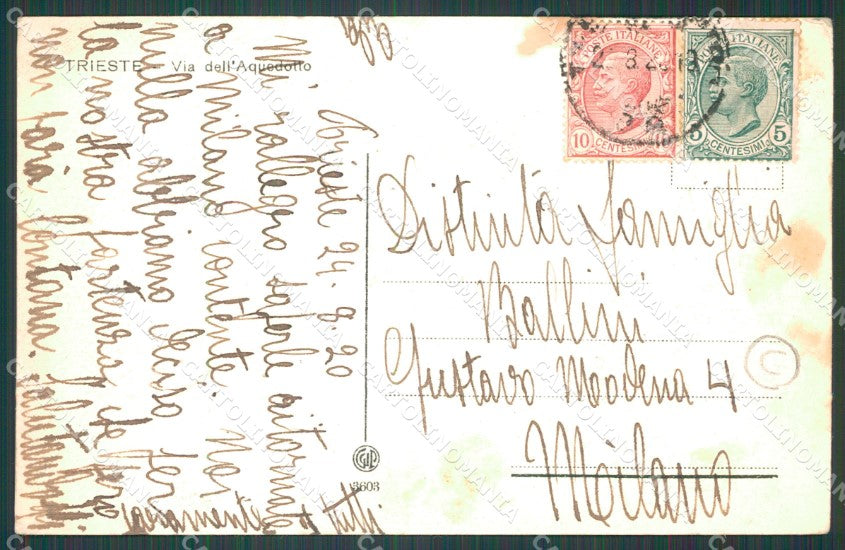 TRIESTE - Via dell'Aquedotto
Trieste 24.8.20
Mi rallegro saperle ritornate
a Milano contente. Noi
nulla abbiamo deciso per
la nostra partenza che però
non sarà lontana. Salutamdoli
caramente a tutti
POSTE ITALIANE
10
CENTESIMI
POSTE ITALIANE
5 5
CENTESIMI
Distinta Famiglia
Ballini
Gustavo Modena 4
Milano
3603
CARTOLINOMANIA